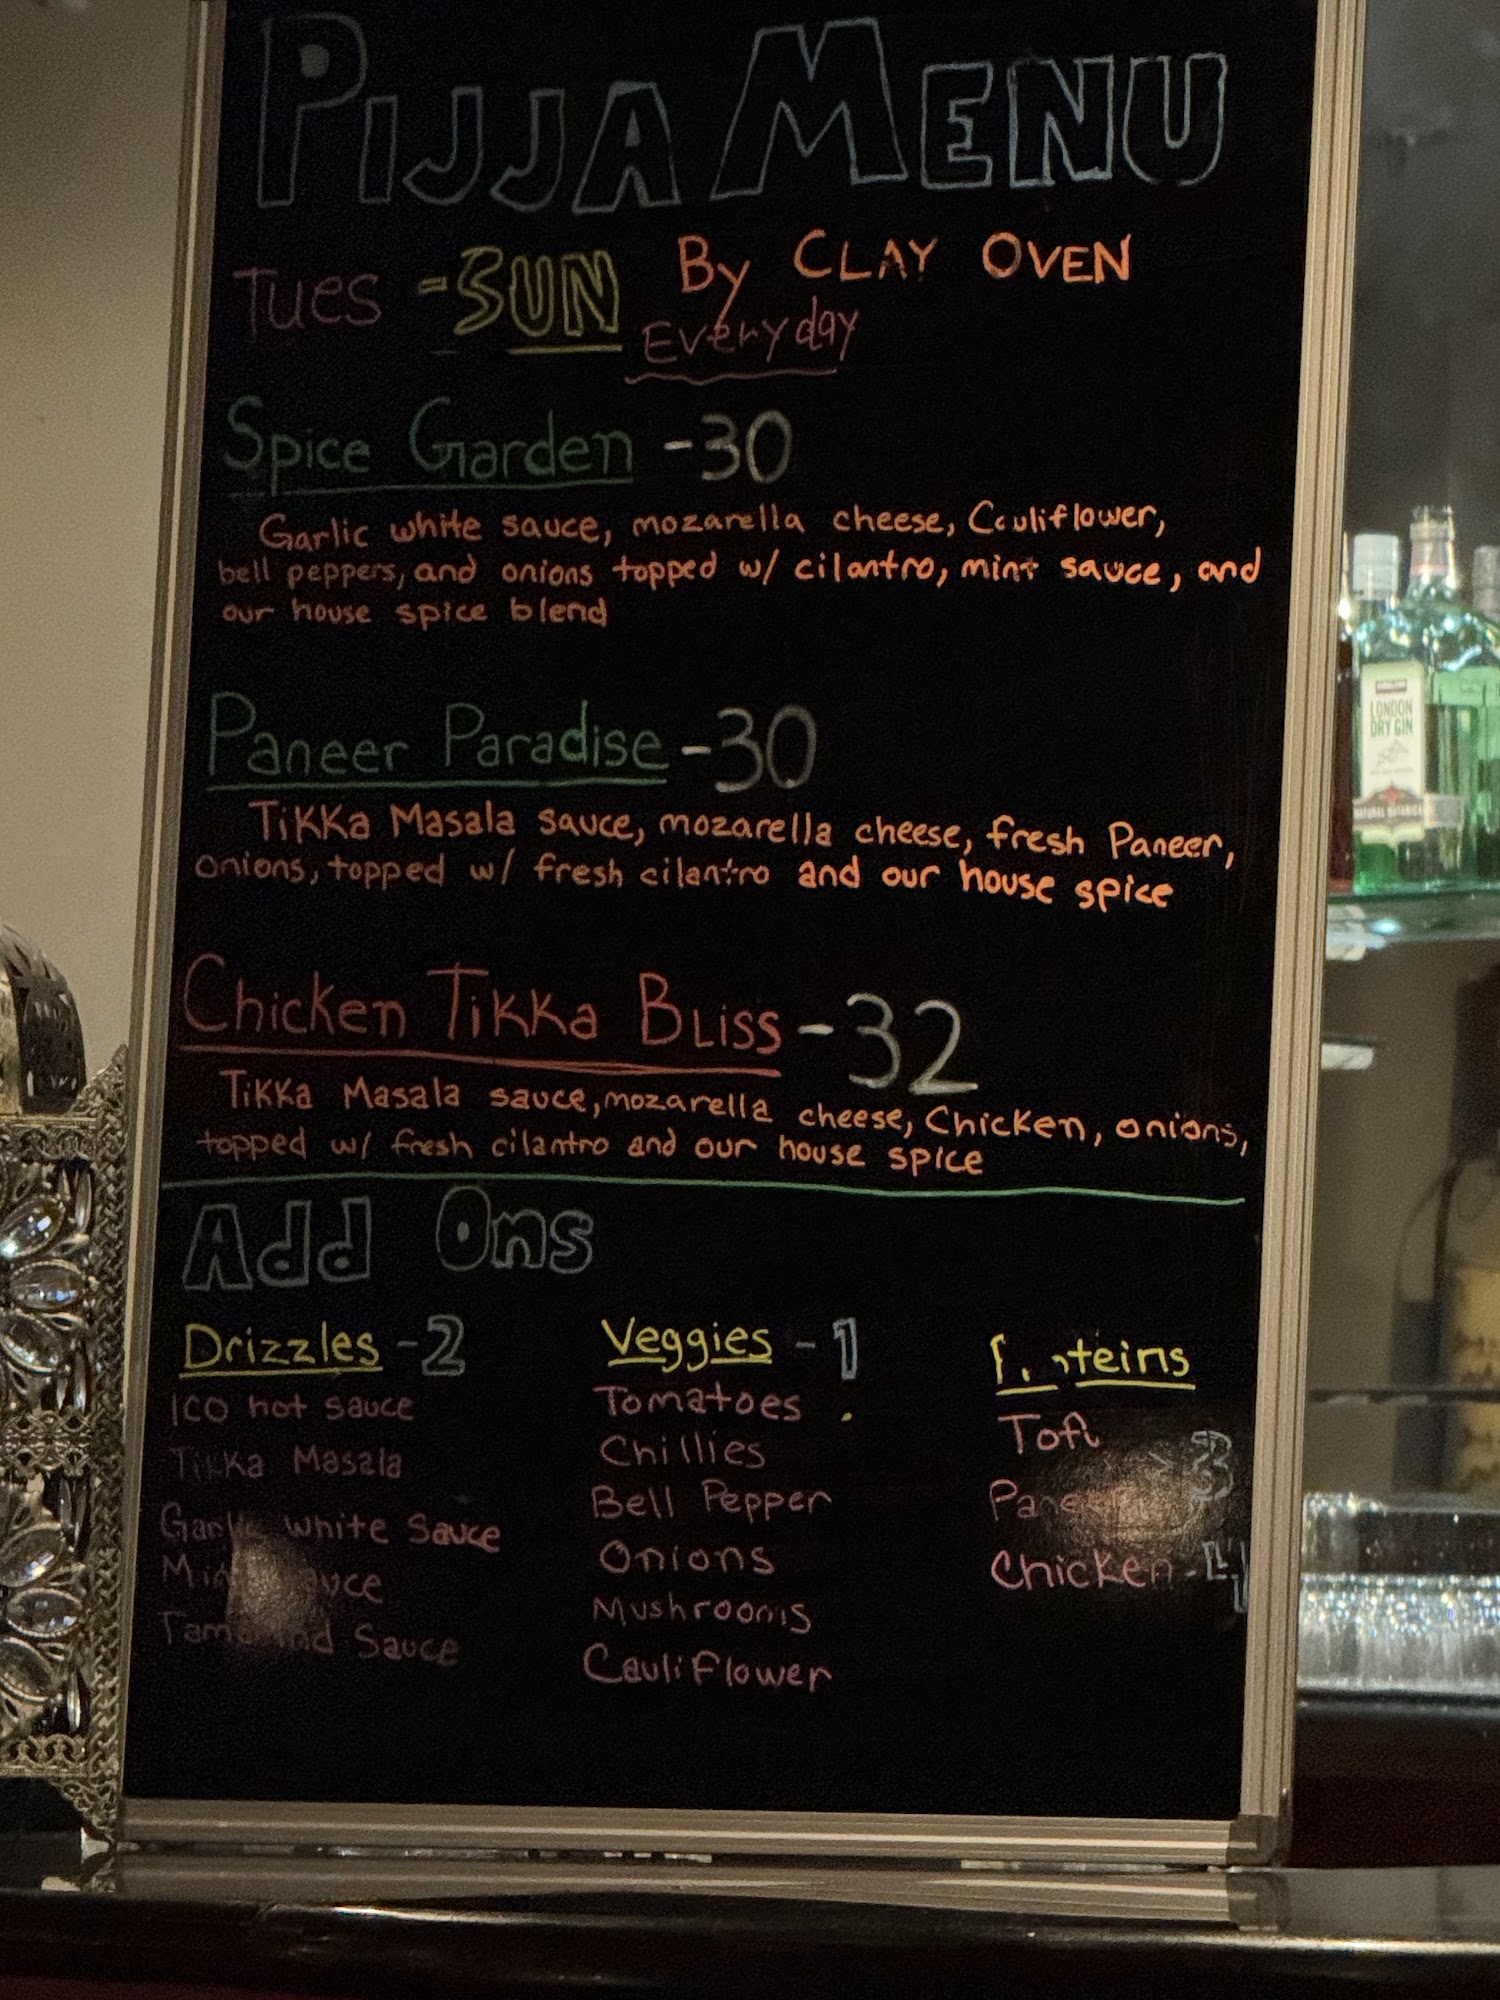 PIJJA MENU
TUES - SUN By CLAY OVEN
Everyday
Spice Garden - 30
Garlic white sauce, mozarella cheese, Cauliflower,
bell peppers, and onions topped w/ cilantro, mint sauce, and
our house spice blend
Paneer Paradise - 30
Tikka Masala sauce, mozarella cheese, fresh Paneer,
onions, topped w/ fresh cilantro and our house spice
Chicken Tikka Bliss - 32
Tikka Masala sauce, mozarella cheese, Chicken, onions,
topped w/ fresh cilantro and our house spice
Add Ons
Drizzles - 2
ICO hot sauce
Tikka Masala
Garlic white Sauce
Mint Sauce
Tamarind Sauce
Veggies - 1
Tomatoes
Chillies
Bell Pepper
Onions
Mushrooms
Cauliflower
Proteins
Tofu
Paneer
3
Chicken - 4
LONDON
DRY GIN